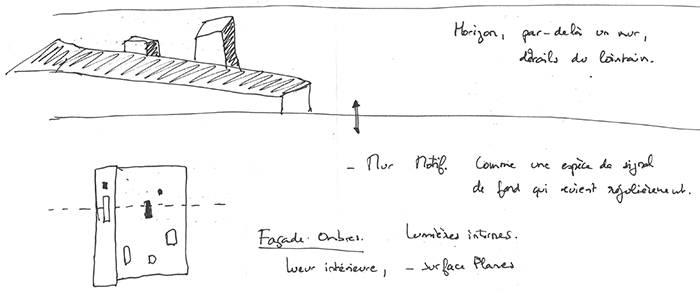 Horizon, par-delà un mur,
détails du lointain.
- Mur Motif. Comme une espèce de signal
de fond qui revient régulièrement.
Façade. Ombres. Lumières internes.
Lueur intérieure, - surface Planes